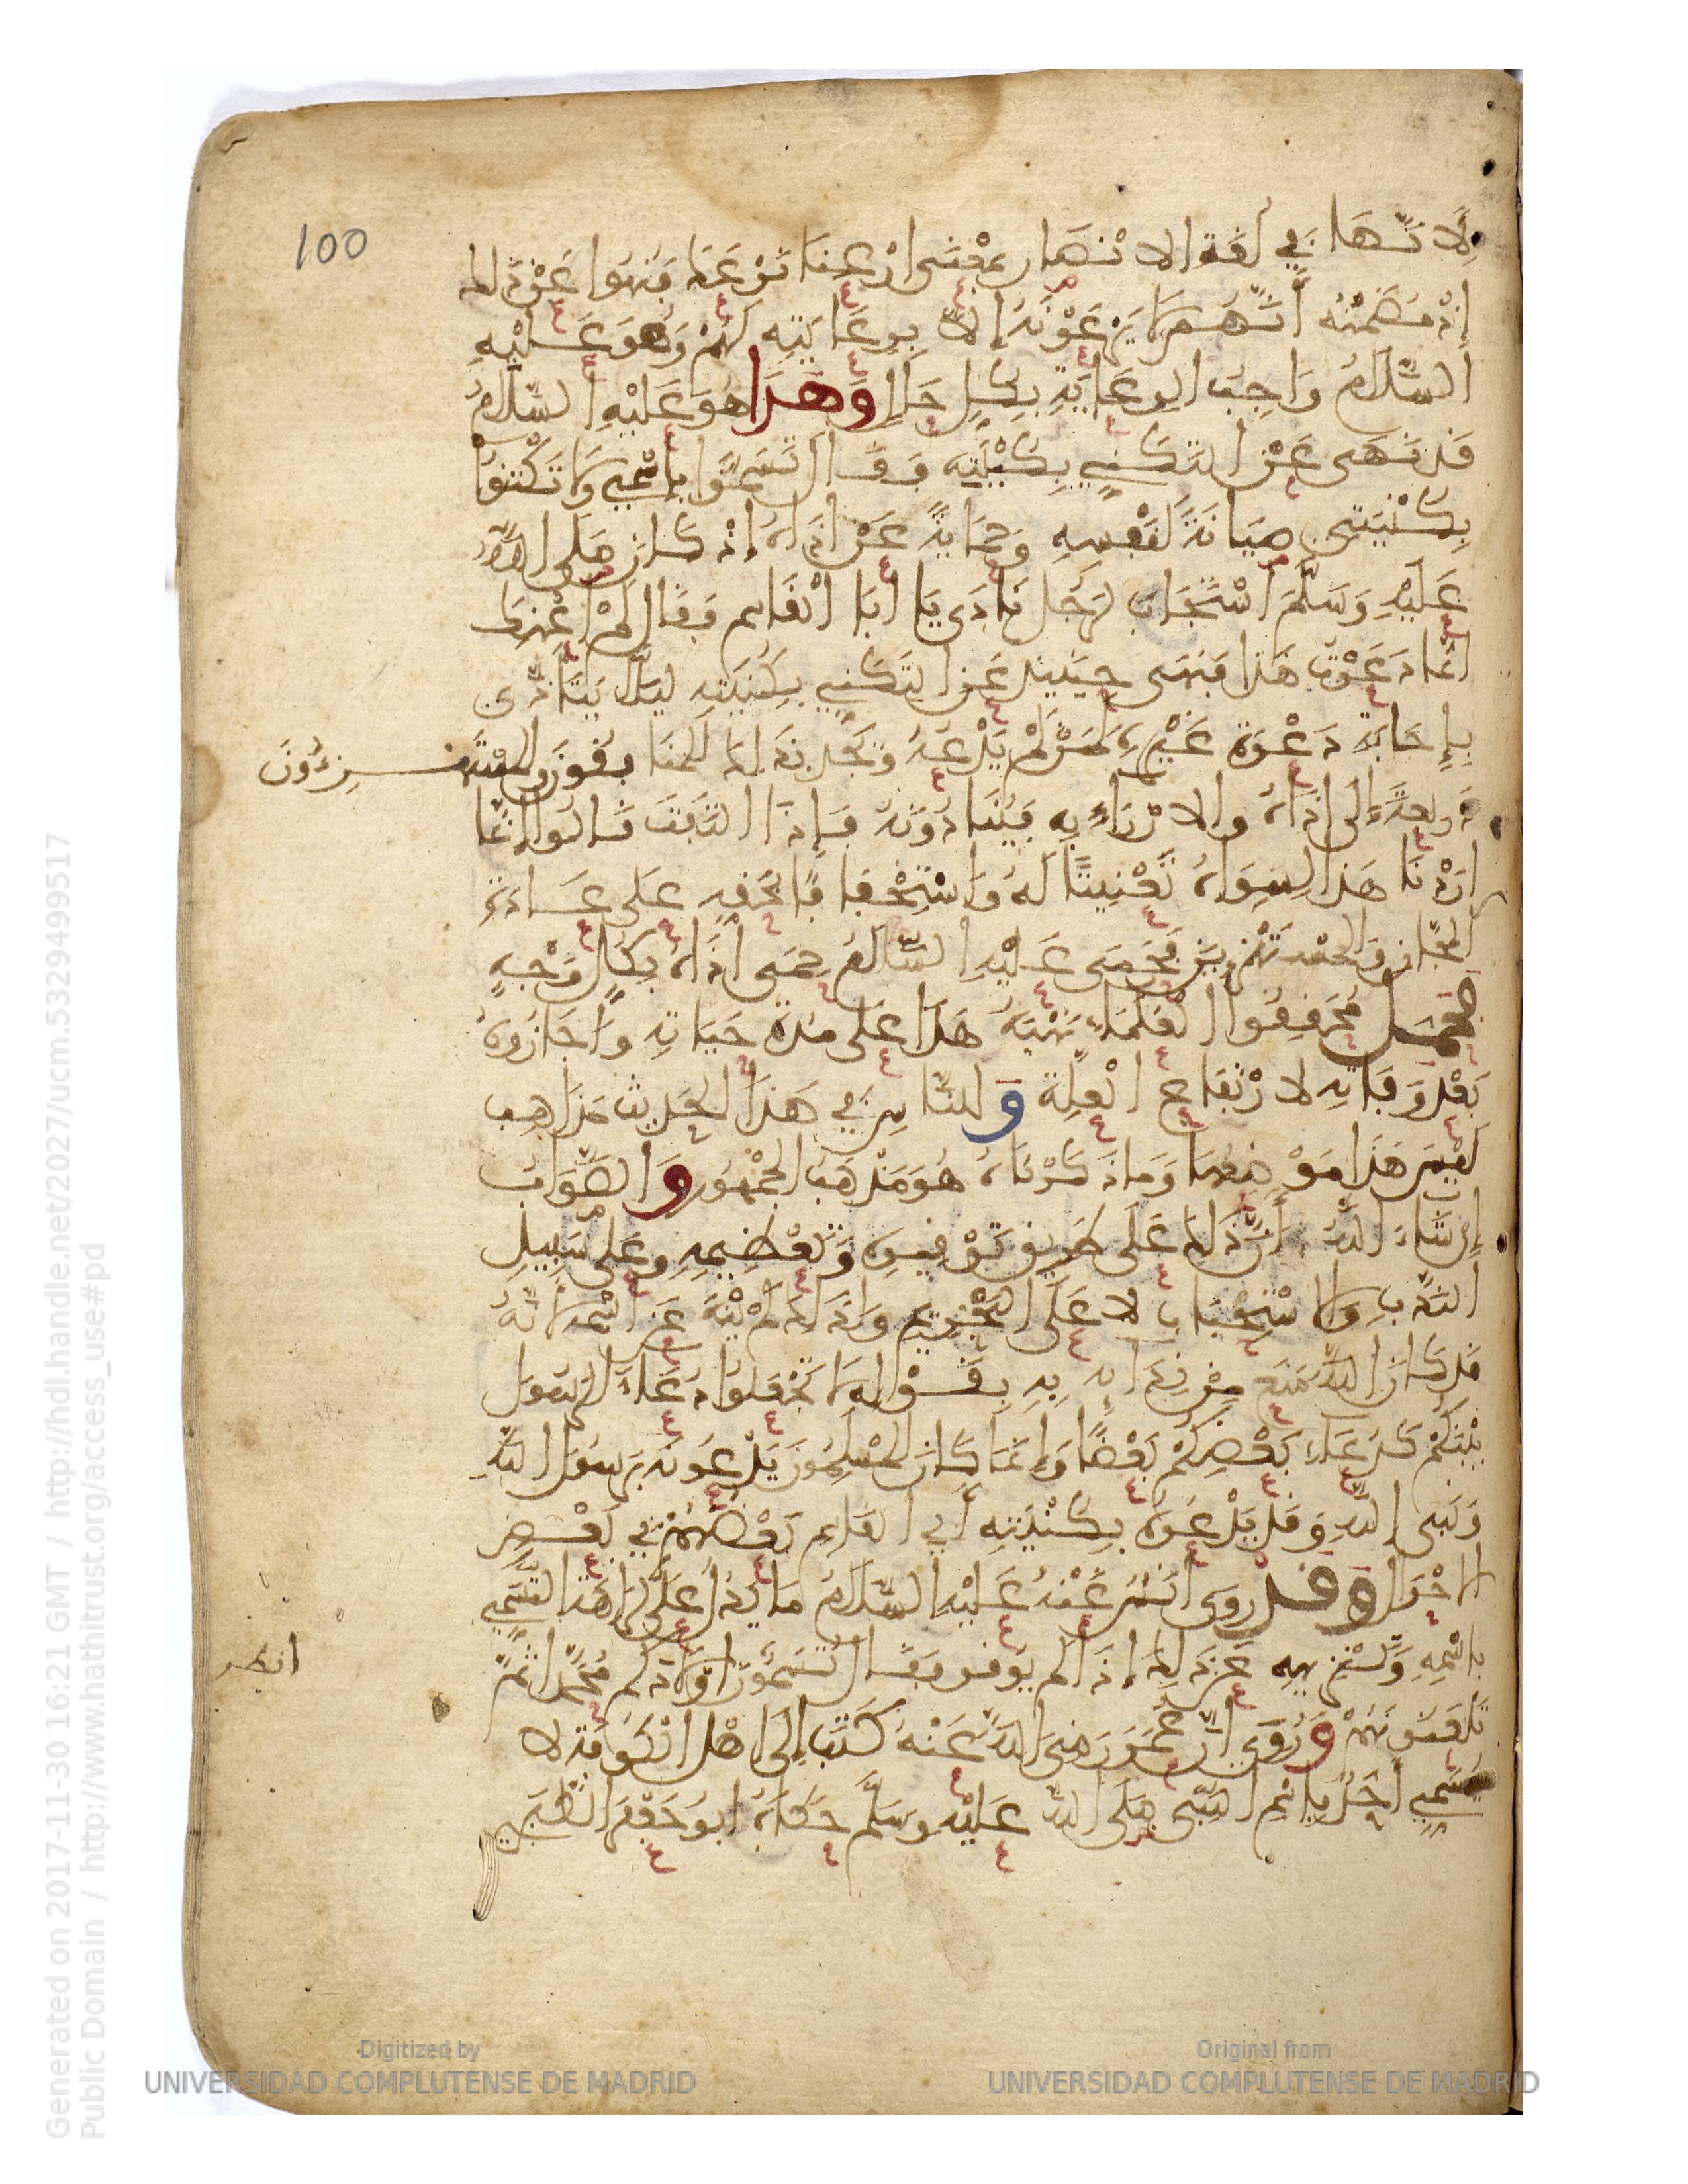 100
لِأَنَّهَا فِي لُغَةِ الانْصَارِ بِمَعْنَى ارْعِنَا نَرْعَكَ فَنُهُوا عَنْ ذَلك
إِذْ مُضَمَّنُه أَنَّهُمْ لَا يَرْعَوْنَهُ إِلَّا بِرِعَايَتِهِ لَهُمْ وَهُوَ عَلَيْهِ
السَّلَامُ وَاجِبُ الرِعَايَةِ بِكُلِ حَالٍ وَهَذَا هُوَ عَلَيْهِ السَّلَامُ
قَد نَهَى عَنْ التَكَنِّي بِكُنْيَتِه فَقَالَ تَسَمَّوْا بِاسْمِي وَلَا تَكْتَنُوا
بِكُنْيَتِي صِيَانَةً لنَفْسِهِ وَحِمَايَةً عَنْ اذَاهُ إِذْ كَانَ صَلَى اللَّهُ
عَلَيْهِ وَسَلَّمَ اسْتَجَابَ لِرَجُلٍ نَادَى يَا أَبَا الْقَاسِمِ فَقَالَ لَمْ أَعْنِكَ
انَّمَا دَعَوْتُ هَذَا فَنَهَى حِينَيِذٍ عَن التَكَنِّي بِكُنْيَتِهِ لِيَلَّا يَتَأَذَّى
بِإِجَابَةِ دَعْوَةِ غَيْرِهِ لِمَنْ لَمْ يَدْعُهُ وَيَجِدَ بِذَلِكَ الْمُنَافِقُونَ وَالْمُسْتَهْزِءُونَ
ذَرِيعَةً إِلَى اذَاهُ والازْرَاءِ بِهِ فَيُنَادُونَهُ فَإِذَا الْتَفَتَ قَالُوا إِنَّمَا
أَرَدْنَا هَذَا لِسِوَاهُ تَعْنِيتًا لَهُ وَاسْتِخْفَافًا بِحَقِهِ عَلَى عَادَةِ
الْمُجَّانِ وَالْمُسْتَهْزِءِينَ فَحَمَى عَلَيْهِ السَّلَامُ حِمَى أَذَاهُ بِكُلِّ وَجْهٍ
فَحَمَلَ مُحَقِّقُوا الْعُلَمَاءِ نَهْيَهُ هَذَا عَلَى مُدَّةِ حَيَاتِهِ وَأَجَازُوهُ
بَعْدَ وَفَاتِهِ لارْتِفَاعِ الْعِلَّةِ وَلِلنَّاسِ فِي هَذَا الْحَدِيثِ مَذَاهِبُ
لَيْسَ هَذَا مَوْضِعَهَا وَمَا ذَكَرْنَاهُ هُوَ مَذْهَبُ الْجُمْهُورِ وَالصَّوَابُ
إِن شَاءَ اللَّهُ أَنَّ ذَلِكَ عَلَى طَرِيقِ تَوْقِيرِهِ وَتَعْظِيمِهِ وَعَلَى سَبِيلِ
النَّدْبِ وَالاسْتِحْبَابِ لا عَلَى التَّحْرِيمِ وَلِذَلِكَ لَمْ يَنْهَ عَن اسْمِهِ لأَنَّهُ
قَد كَانَ اللَّهُ مَنَعَ مِنْ نِدَايِهِ بِهِ بِقَوْلِهِ لَا تَجْعَلُوا دُعَاءَ الرَسُولِ
بَيْنَكُمْ كَدُعَاءِ بَعْضِكُمْ بَعْضًا وَإِنَّمَا كَانَ الْمُسْلِمُونَ يَدْعُونَهُ بِرَسُولِ اللَّهِ
وَنَبِي اللَّهِ وَقَد يَدْعُوهُ بِكُنْيَتِهِ أَبِي الْقَاسِمِ بَعْضُهُمْ فِي بَعْضِ
الاحْوَالِ وَقَدْ رَوَى أَنَسٌ عَنْهُ عَلَيْهِ السَّلَامُ مَا يَدُلُّ عَلَى كَرَاهَةِ التَّسَمِّي
بِاسْمِهِ وَتَنْزِيهِهِ عَنْ ذَلِكَ إِذَا لَمْ يُوَقَّر فَقَالَ تُسَمُّونَ أَوْلَادَكُم مُحَمَّدًا ثُمَّ
انظر
تَلْعَنُونَهُمْ وَرُوِيَ أَنَّ عُمَرَ رَضِيَ اللَّهُ عَنْهُ كَتَبَ إِلَى أَهْلِ الْكُوفَةِ لا
يُسَمَّى أَحَدٌ بِاسْمِ النَّبِي صَلَى اللَّهُ عَلَيْهِ وَسَلَّمَ حَكَاهُ ابُو جَعْفَرٍ الطَّبَرِي
Generated on 2017-11-30 16:21 GMT / http://hdl.handle.net/2027/ucm.5329499517
Public Domain / http://www.hathitrust.org/access_use#pd
Digitized by
UNIVERSIDAD COMPLUTENSE DE MADRID
Original from
UNIVERSIDAD COMPLUTENSE DE MADRID